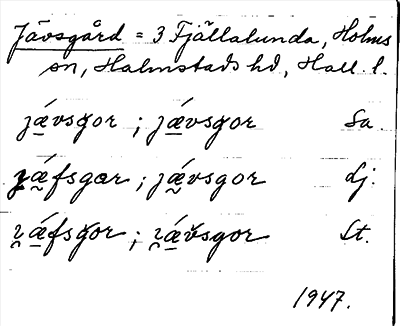 Jävsgård = 3 Fjällalunda, Holms
sn, Halmstads hd, Hall. l.
jǽvsgor ; jǽvsgor Sa.
jǽfsgær ; jǽvsgor Lj.
ɿǽfsgor ; ɿǽvsgor St.
1947.